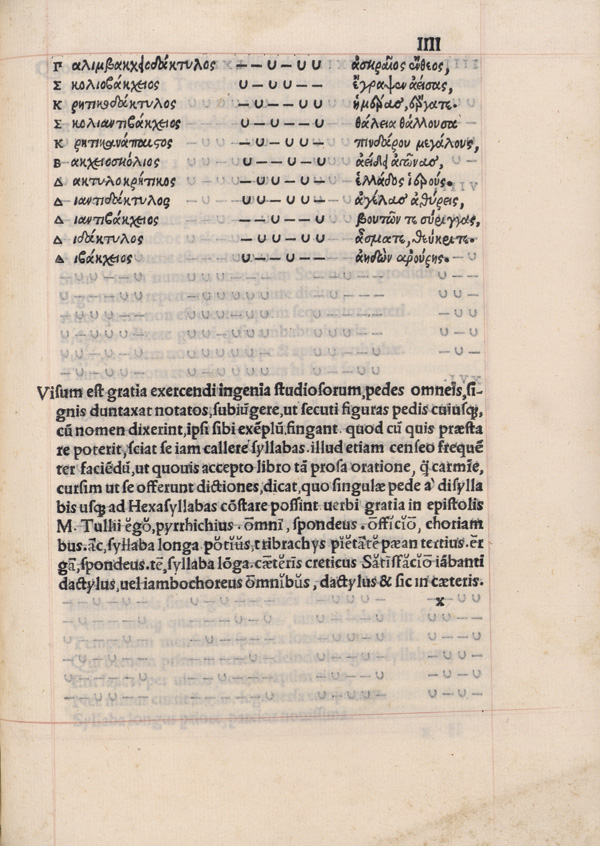 IIII
Γ αλιμβακχοδάκτυλος — — ∪ — ∪ ∪ ἀσκραῖος ἔνθεος,
Σ κολιοβάκχειος ∪ — ∪ — — ἔγραψεν ἀείσας,
Κ ρητικοδάκτυλος — ∪ — — ∪ ∪
Σ κολιαντιβάκχειος ∪ — ∪ — — ∪ θάλεια θάλλουσα
Κ ρητικανάπαιστος — ∪ — ∪ ∪ — πινδάρου μεγάλους,
Β ακχειοσκόλιος ∪ — — ∪ — ∪
Δ ακτυλοκρήτικος — ∪ ∪ — ∪ — ἑλλάδος
Δ ιαντιδάκτυλος
Δ ιαντιβάκχειος βουτῶν τε σύριγγας,
Δ ιδάκτυλος — ∪ ∪ — ∪ ∪
Δ ιβάκχειος ∪ — — ∪ — —
Visum est gratia exercendi ingenia studiosorum,pedes omneis,si-
gnis duntaxat notatos,subiũgere,ut secuti figuras pedis cuiusq;,
cũ nomen dixerint,ipsi sibi exẽplũ,fingant. quod cũ quis præsta
re poterit,sciat se iam callere syllabas.illud etiam censeo frequẽ
ter faciẽdũ,ut quouis accepto libro tã prosa oratione, q̃ carmĩe,
cursim ut se offerunt dictiones,dicat,quo singulæ pede a disylla
bis usq; ad Hexasyllabas cõstare possint uerbi gratia in epistolis
M. Tullii ĕgŏ,pyrrhichius .ōmnī, spondeus .ōffĭcĭō, choriam
bus.āc,syllaba longa pŏtĭŭs,tribrachys pĭĕtātĕ pæan tertius.ēr
gā,spondeus.tē,syllaba lõga.cætĕrīs creticus Sătīsfăcĭō iābanti
dactylus,uel iambochoreus ōmnĭbŭs, dactylus & sic in cæteris.
x